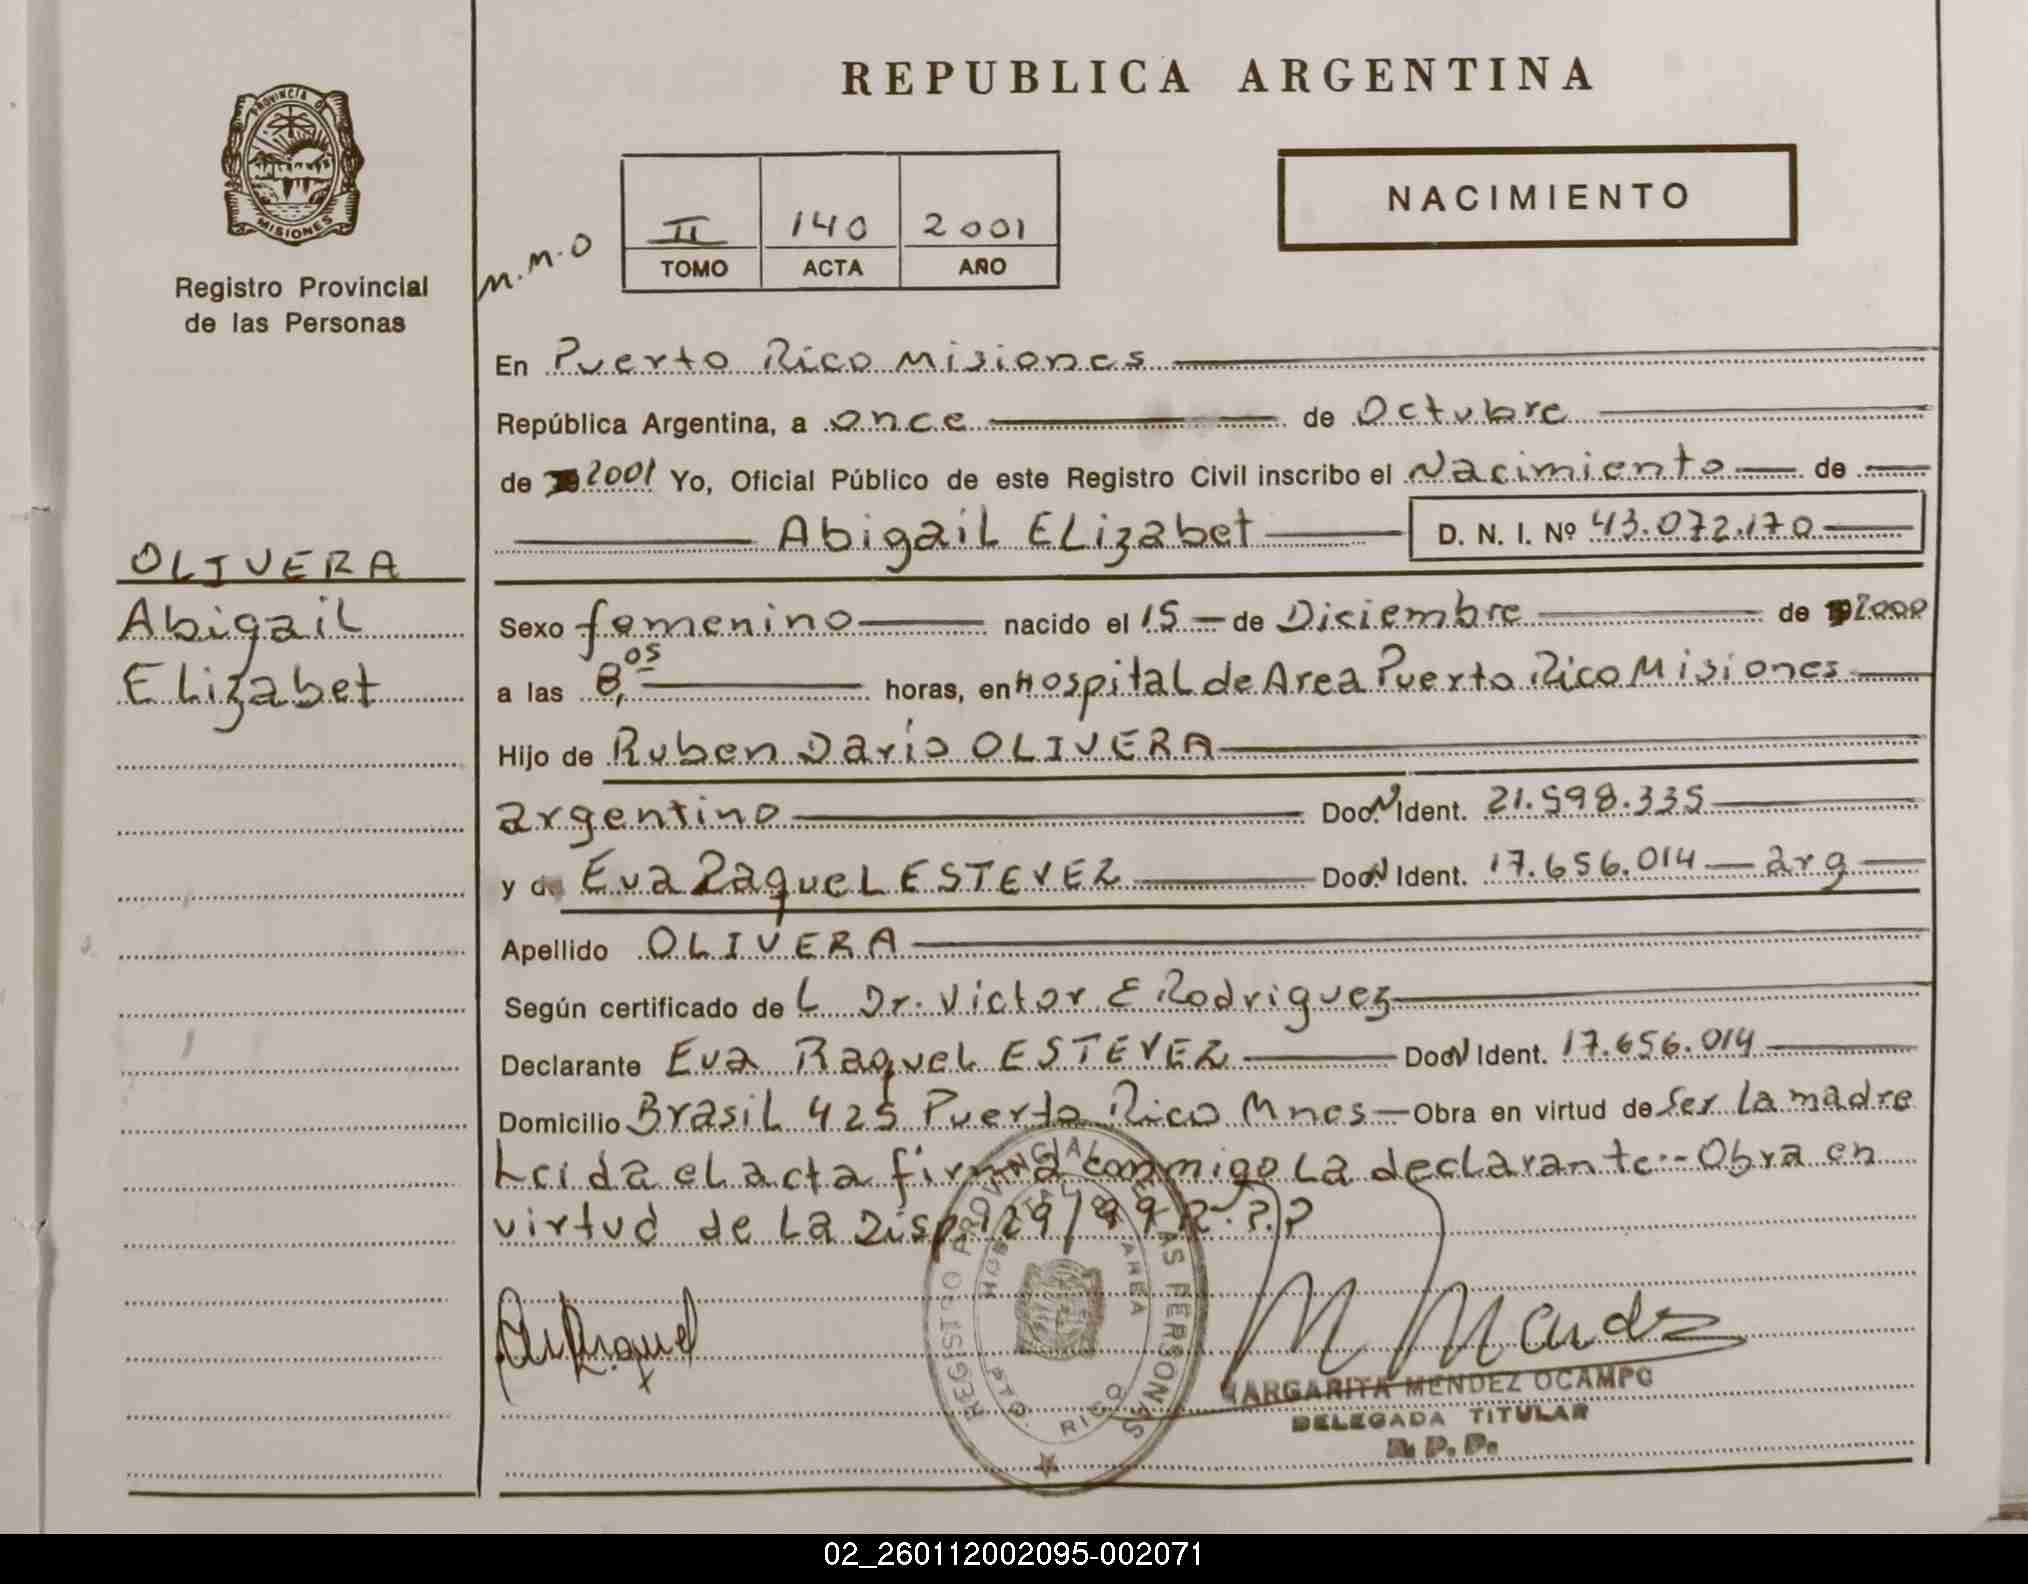 REPUBLICA ARGENTINA
PROVINCIA D
MISIONES
Registro Provincial
de las Personas
M.M.O
II 140 2001
TOMO ACTA AÑO
NACIMIENTO
En Puerto Rico Misiones
República Argentina, a once de Octubre
de 2001 Yo, Oficial Público de este Registro Civil inscribo el Nacimiento de
Abigail Elizabet D. N. I. Nº 43.072.170
OLIVERA
Abigail
Elizabet
Sexo femenino nacido el 15 de Diciembre de 2000
a las 8,05 horas, en Hospital de Area Puerto Rico Misiones
Hijo de Ruben Dario OLIVERA
argentino Doc. N Ident. 21.598.335
y de Eva Raquel ESTEVEZ Doc. N Ident. 17.656.014 arg
Apellido OLIVERA
Según certificado de L Dr. Victor E Rodriguez
Declarante Eva Raquel ESTEVEZ Doc N Ident. 17.656.014
Domicilio Brasil 425 Puerto Rico Mnes Obra en virtud de Ser la madre
Leida el acta firma conmigo la declarante.- Obra en
virtud de la Disp 129/99 R.P.P
REGISTRO PROVINCIAL DE LAS PERSONAS
HOSPITAL AREA
PTO. RICO
Raquel
M Mendez
MARGARITA MENDEZ OCAMPO
DELEGADA TITULAR
R. P. P.
02_260112002095-002071